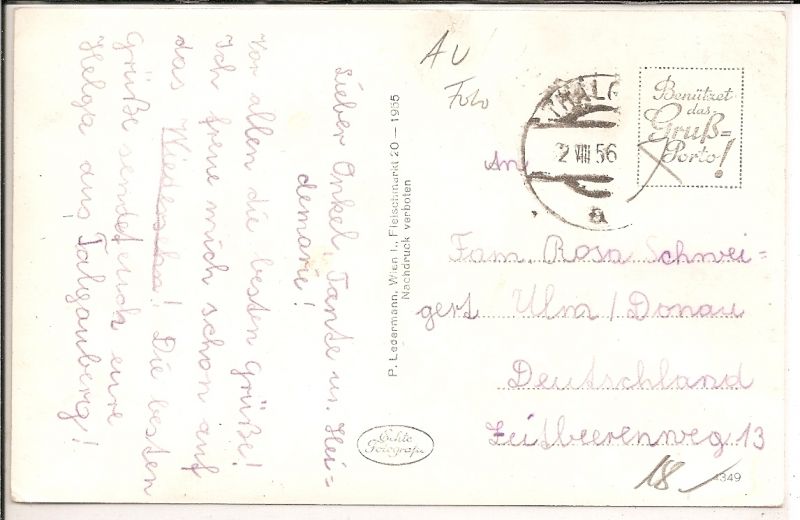 Lieber Onkel, Tante u. Hei=
demarie!
Vor allen die besten Grüße!
Ich freue mich schon auf
das Wiedersehen! Die besten
Grüße sendet euch eure
Helga aus Talgauberg!
P. Ledermann, Wien I., Fleischmarkt 20 — 1955
Nachdruck verboten
Echte
Fotografie
AU
Foto
THALG
2 VIII 56
a
Benützet
das
Gruß=
Porto!
An
Fam. Rosa Schwei=
gert Ulm/Donau
Deutschland
Zeitbeerenweg 13
18
4349